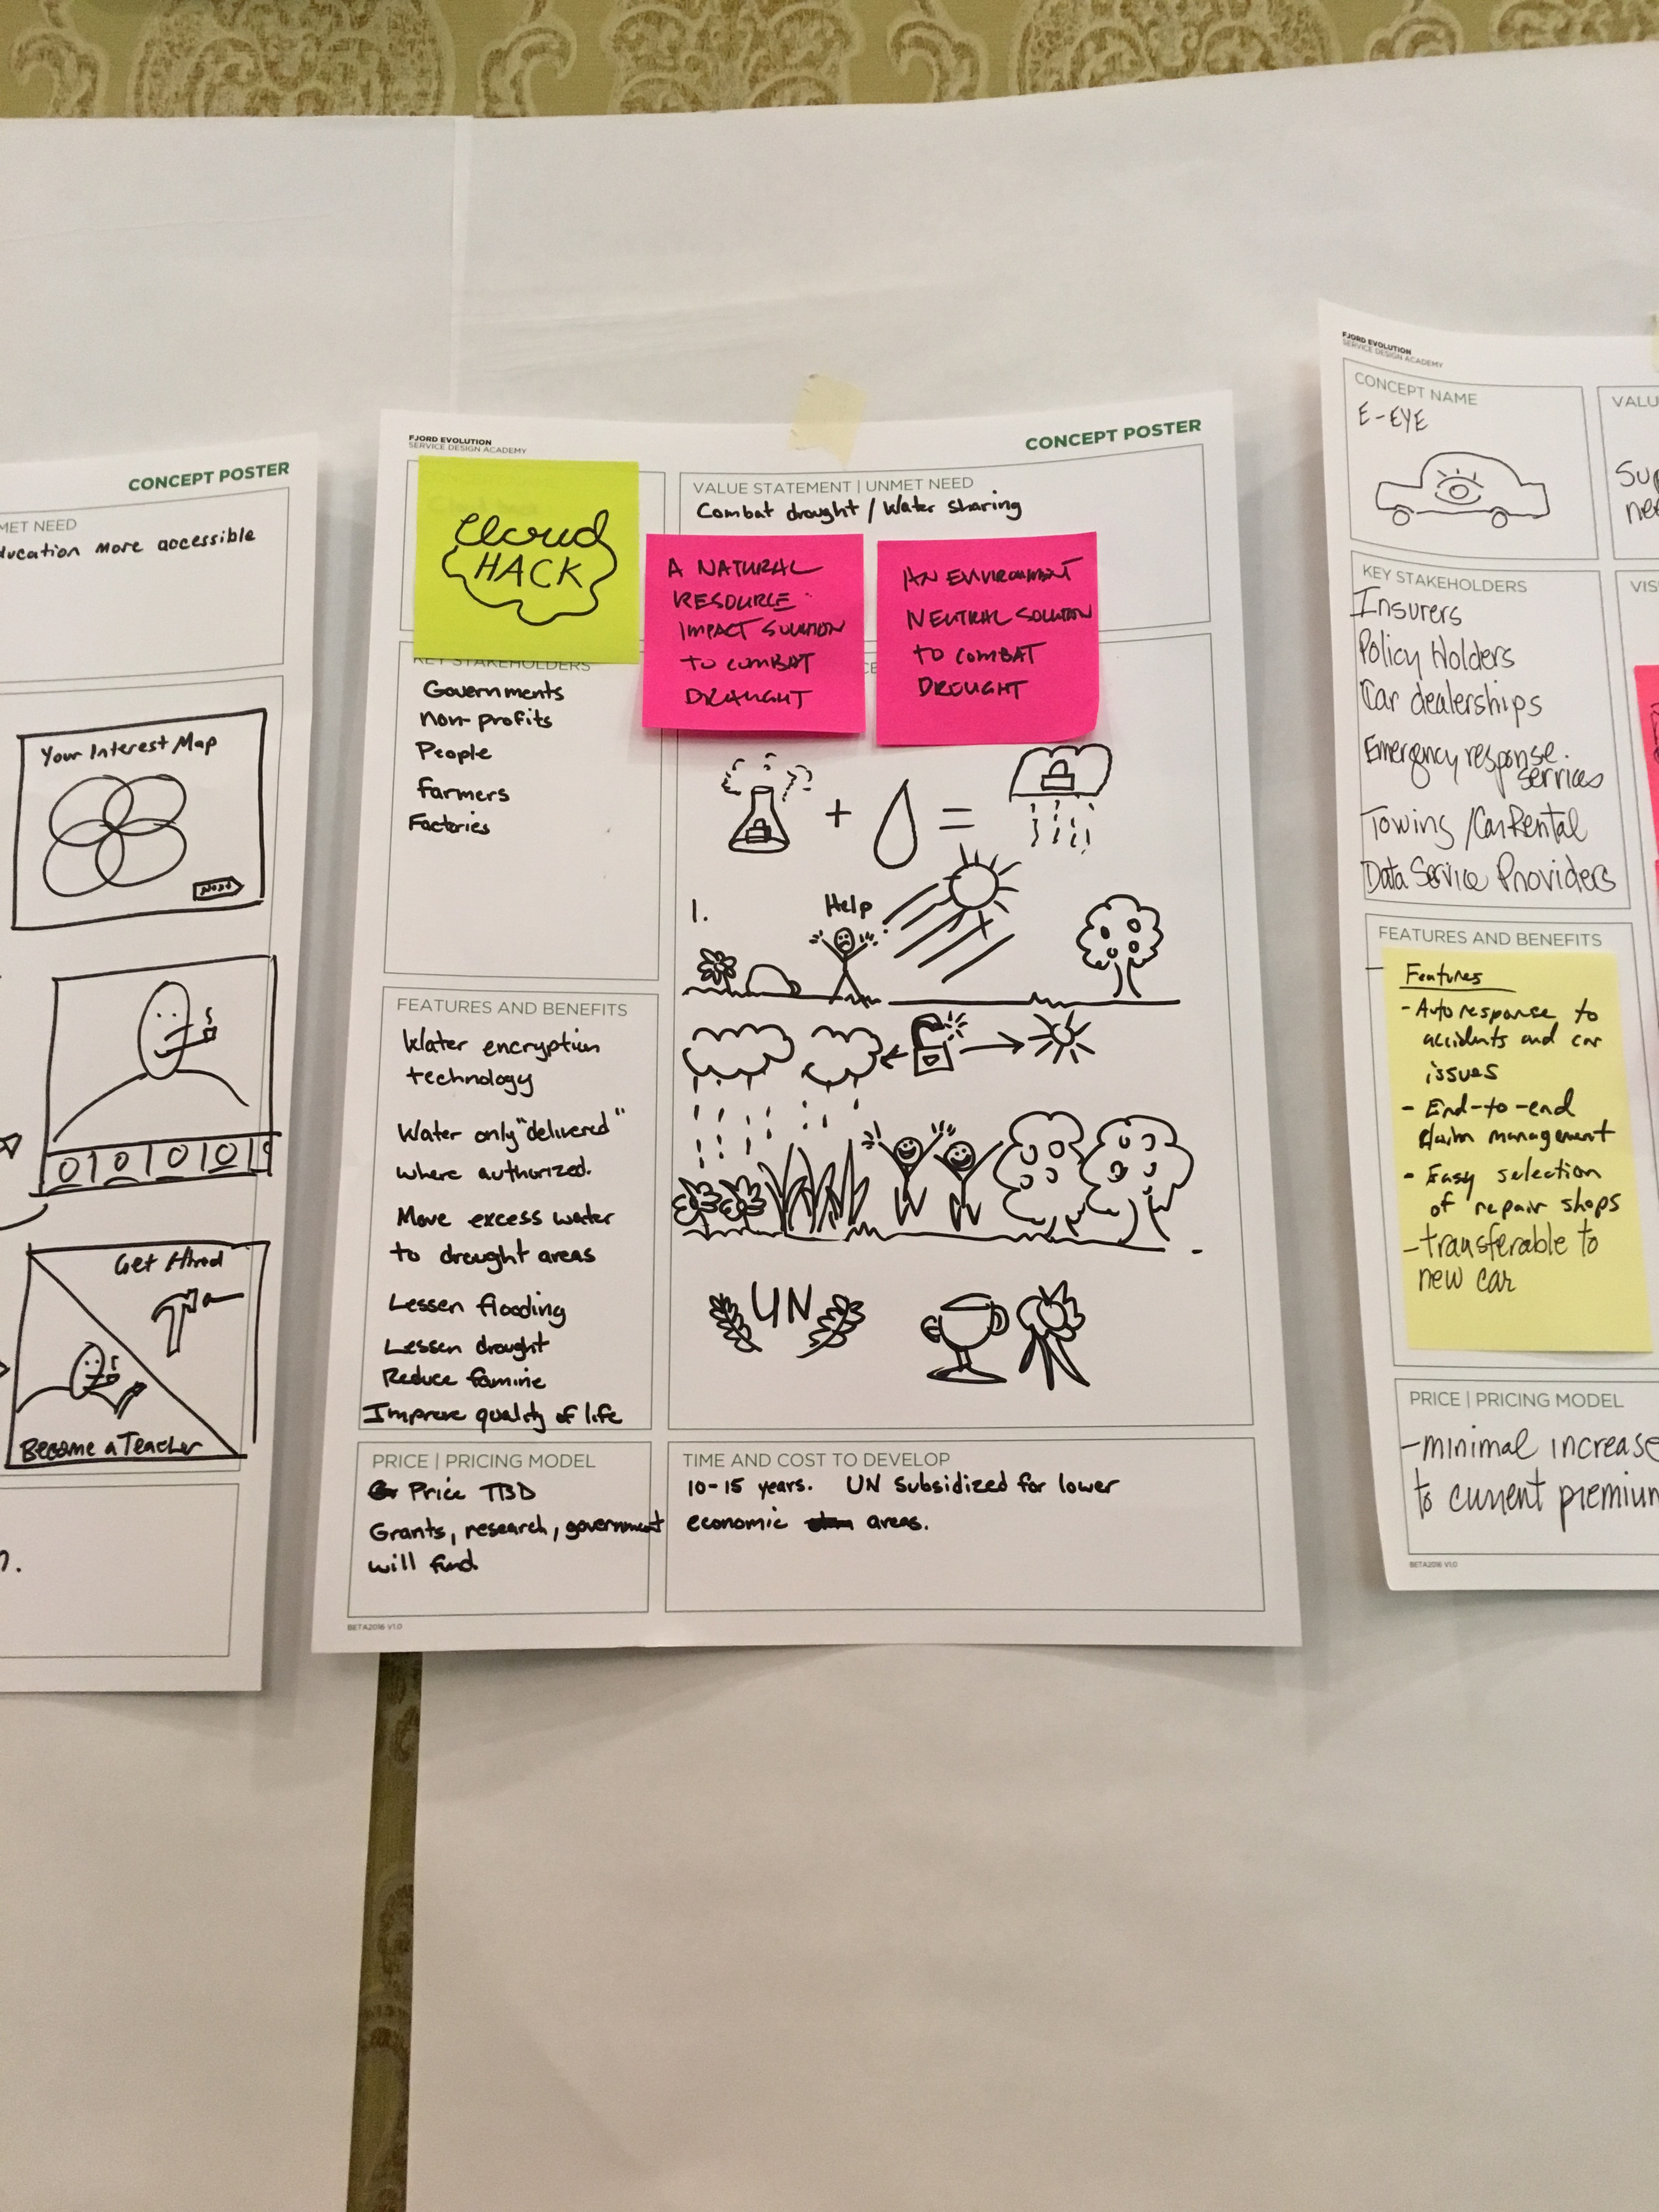 CONCEPT POSTER
MET NEED
ducation more accessible
Your Interest Map
Next
0101010101
Get Hired
Become a Teacher
FJORD EVOLUTION
SERVICE DESIGN ACADEMY
CONCEPT POSTER
Cloud
HACK
VALUE STATEMENT | UNMET NEED
Combat drought / Water sharing
A NATURAL
RESOURCE
IMPACT SOLUTION
TO COMBAT
DRAUGHT
AN ENVIRONMENT
NEUTRAL SOLUTION
TO COMBAT
DROUGHT
KEY STAKEHOLDERS
Governments
non-profits
People
Farmers
Factories
1.
Help
UN
FEATURES AND BENEFITS
Water encryption
technology
Water only "delivered"
where authorized.
Move excess water
to drought areas
Lessen flooding
Lessen drought
Reduce famine
Improve quality of life
PRICE | PRICING MODEL
Price TBD
Grants, research, government
will fund.
TIME AND COST TO DEVELOP
10-15 years. UN Subsidized for lower
economic areas.
BETA2016 V1.0
FJORD EVOLUTION
SERVICE DESIGN ACADEMY
CONCEPT NAME
E-EYE
VALU
Sup
nee
KEY STAKEHOLDERS
Insurers
Policy Holders
Car dealerships
Emergency response
services
Towing /Car Rental
Data Service Providers
VIS
FEATURES AND BENEFITS
Features
- Auto response to
accidents and car
issues
- End-to-end
claim management
- Easy selection
of repair shops
- transferable to
new car
PRICE | PRICING MODEL
- minimal increase
to current premium
BETA2016 V1.0